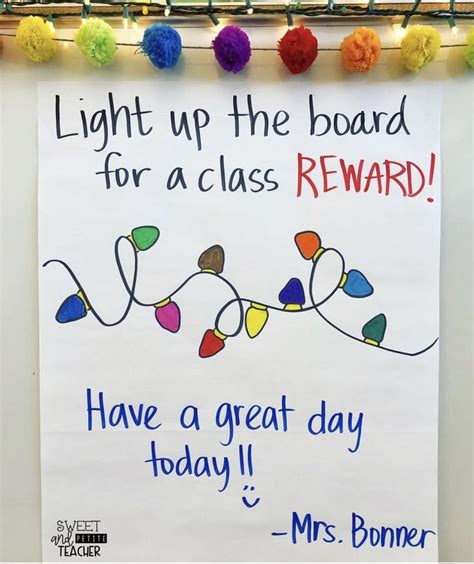 Light up the board
for a class REWARD!
Have a great day
today!!
-Mrs. Bonner
SWEET
and PETITE
TEACHER